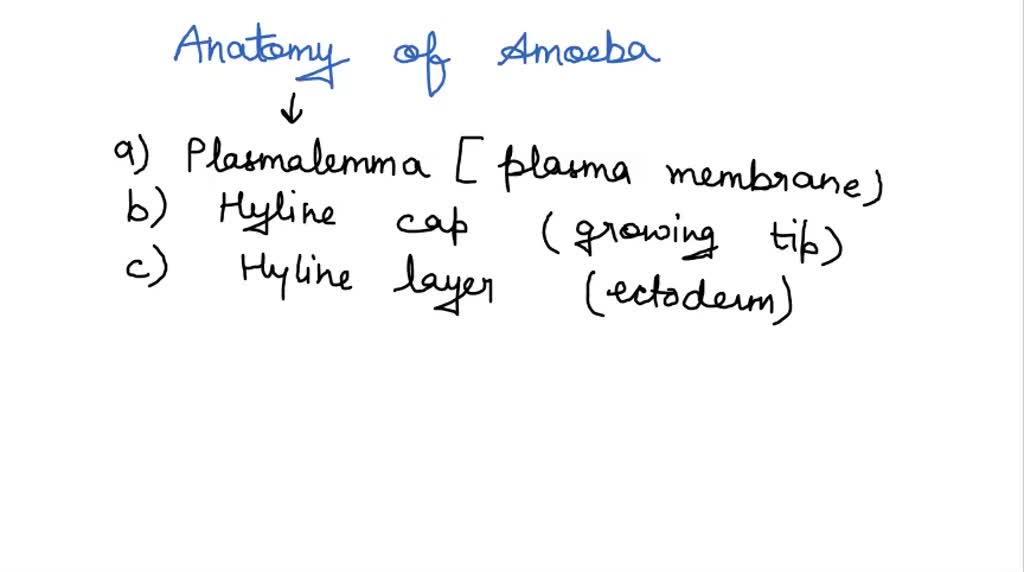 Anatomy of Amoeba
↓
a) Plasmalemma [plasma membrane)
b) Hyline cap (growing tip)
c) Hyline layer (ectoderm)